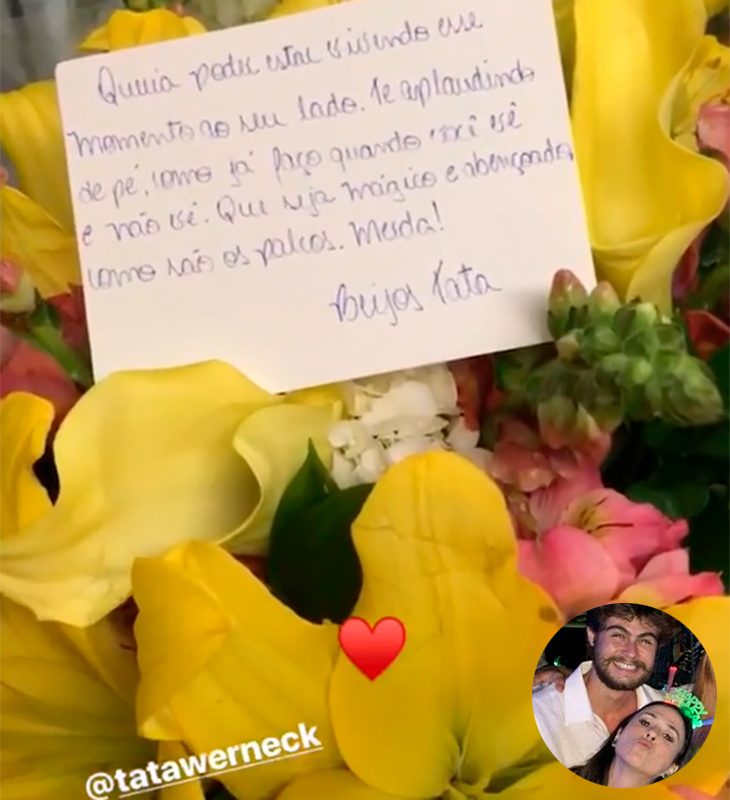 Queria poder estar vivendo esse
momento ao seu lado. Te aplaudindo
de pé, como já faço quando você vê
e não vê. Que seja mágico e abençoado,
como são os palcos. Merda!
Beijos Tata
@tatawerneck
HAPPY